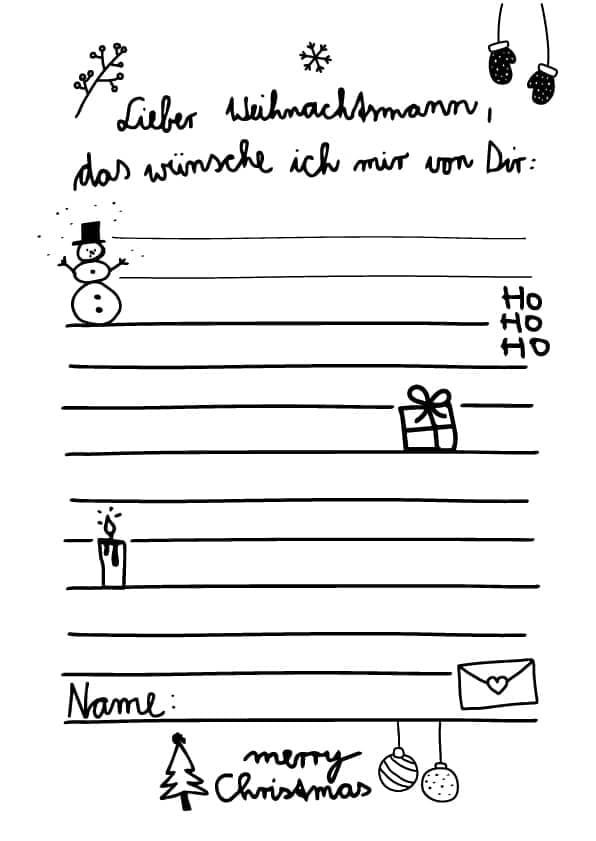 Lieber Weihnachtsmann,
das wünsche ich mir von Dir:
Ho
Ho
HO
Name:
merry
Christmas